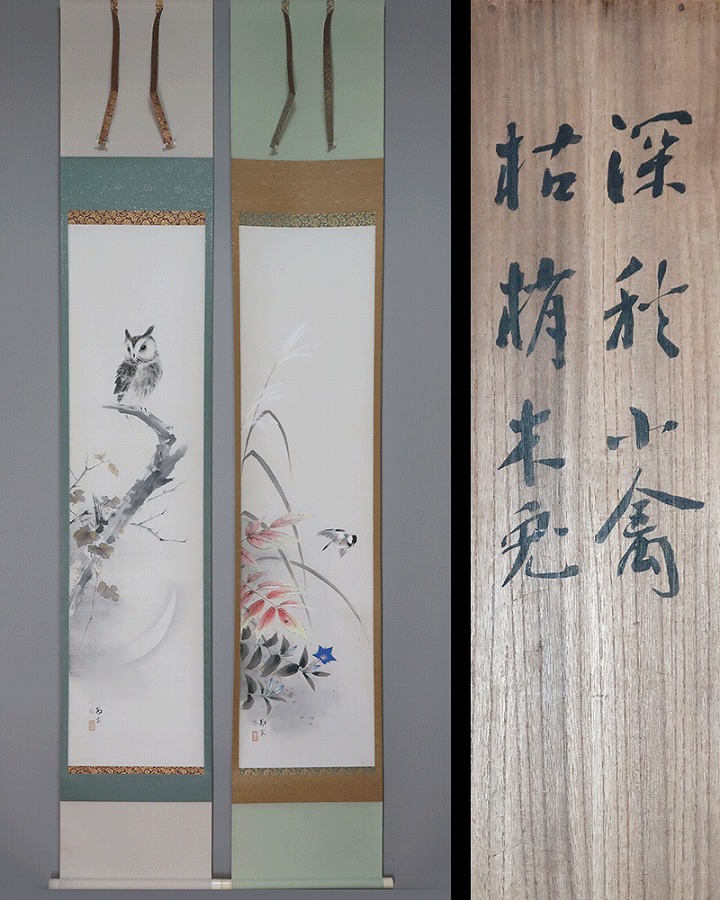 深秋小禽
枯梢木兎